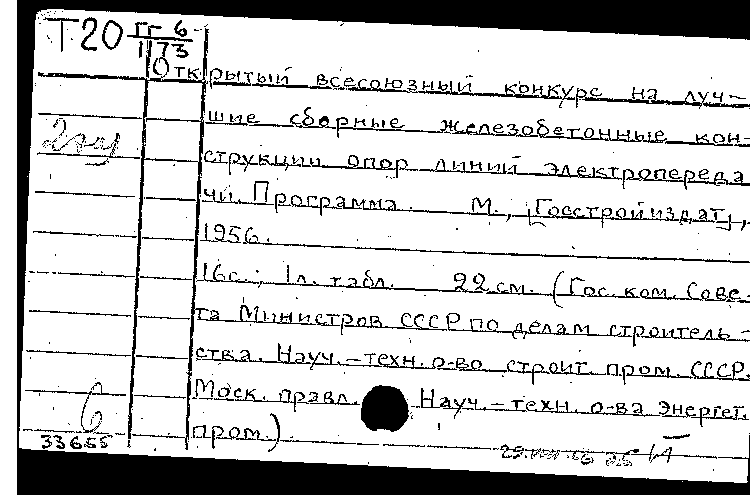 Т20 гг 6
1173
Открытый всесоюзный конкурс на луч-
шие сборные железобетонные кон-
струкции опор линий электропереда
чи. Программа. М., [Госстройиздат],
1956.
16с.; 1л. табл. 22 см. (Гос. ком. Сове-
та Министров СССР по делам строитель-
ства. Науч.-техн. о-во строит. пром. СССР.
Моск. правл. Науч.-техн. о-ва энергет.
пром.)
6
33655